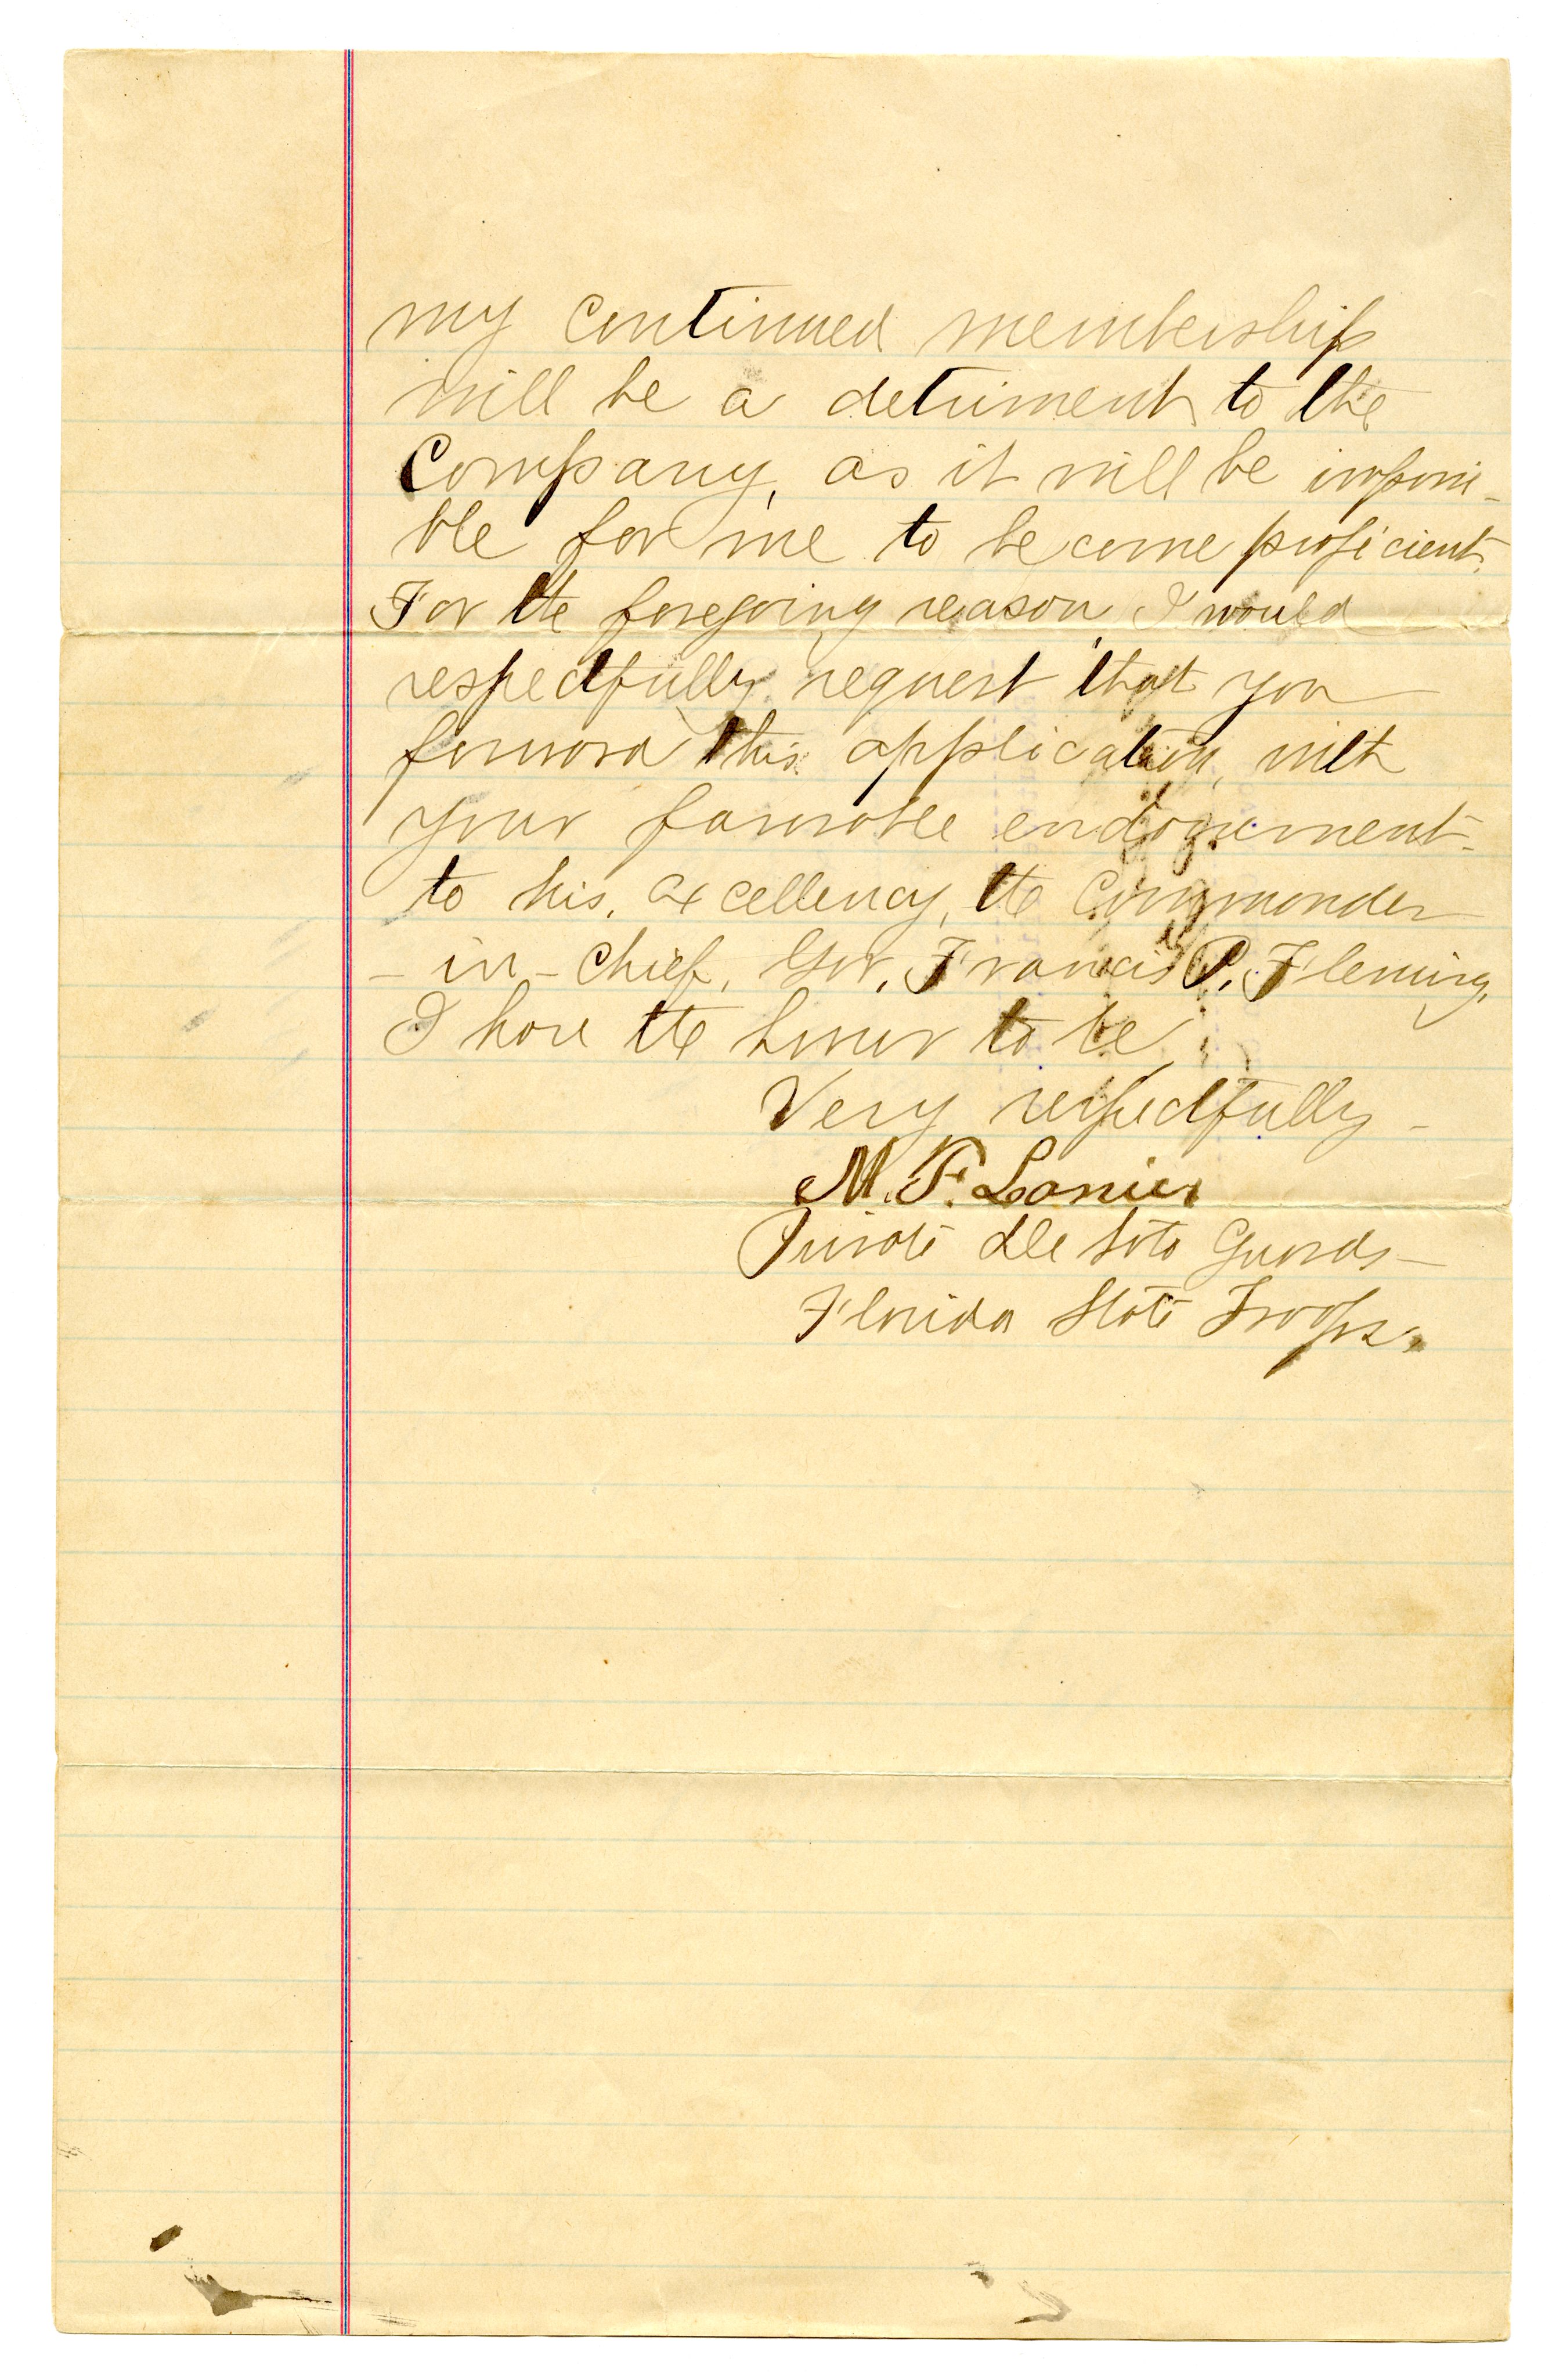 my continued membership
will be a detriment to the
Company, as it will be impossi-
ble for me to become proficient.
For the foregoing reason I would
respectfully request that you
forward this application, with
your favorable endorsement
to his, excellency, the Commander
- in - Chief, Gov. Francis P. Fleming,
I have the honor to be,
Very respectfully -
M. F. Lanier
Private De Soto Guards -
Florida State Troops.